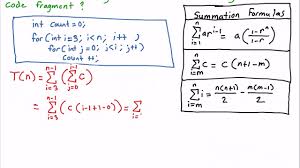 code fragment ?
int count = 0;
for (int i=3; i<n; i++)
for (int j=0; j<i; j++)
Count ++;
T(n) = ∑_{i=3}^{n-1} (∑_{j=0}^{i-1} C)
= ∑_{i=3}^{n-1} (C (i-1+1-0)) = ∑_{i=
Summation Formulas
∑_{i=1}^{n} ar^{i-1} = a (1-r^n / 1-r)
∑_{i=m}^{n} C = C (n+1-m)
∑_{i=m}^{n} i = n(n+1)/2 - m(m-1)/2